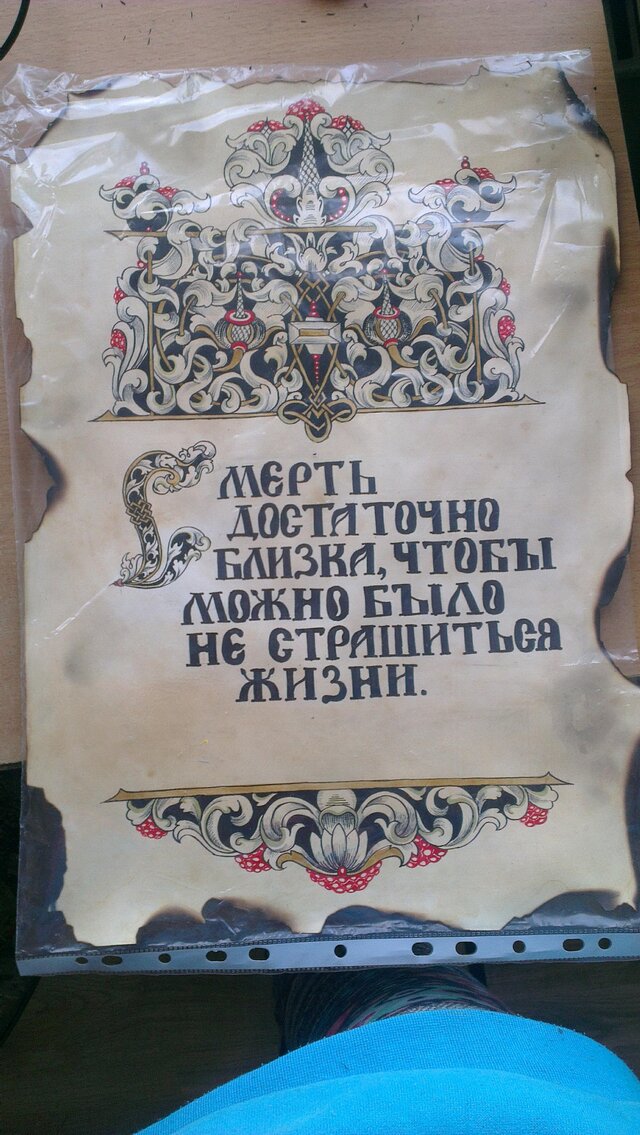 Смерть
достаточно
близка, чтобы
можно было
не страшиться
жизни.